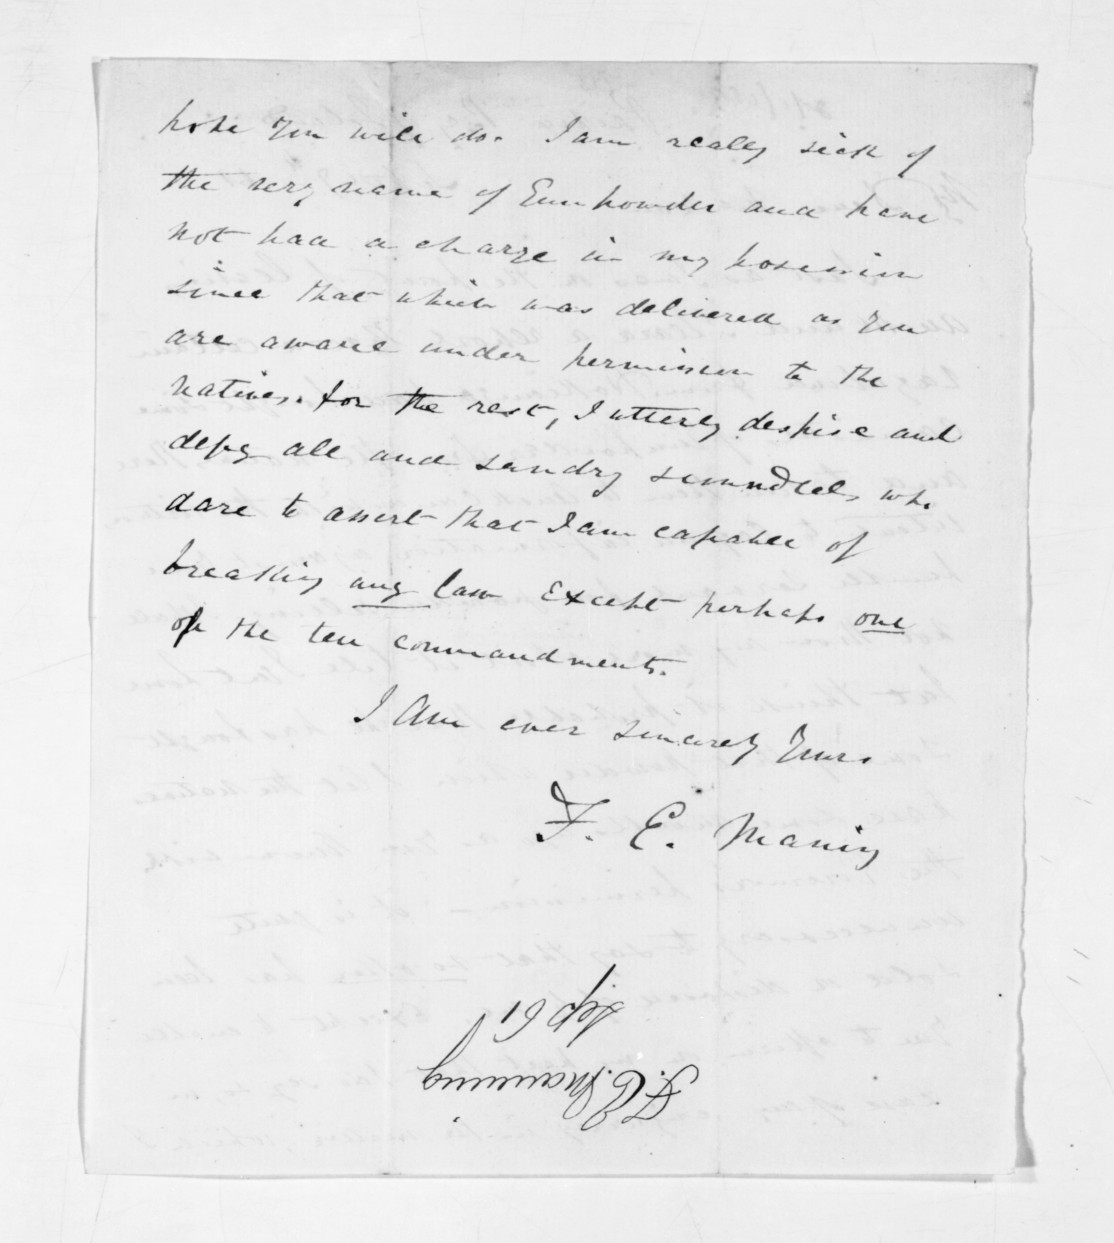 hope you will do. I am really sick of
the very name of Gunpowder and have
not had a charge in my possession
since that which was delivered as you
are aware under permission to the
natives. for the rest, I utterly despise and
defy all and sundry scoundrels, who
dare to assert that I am capable of
breaking any law except perhaps one
of the ten commandments.
I Am ever sincerely Yours
F. E. Maning
Sep 61
F. E. Maning